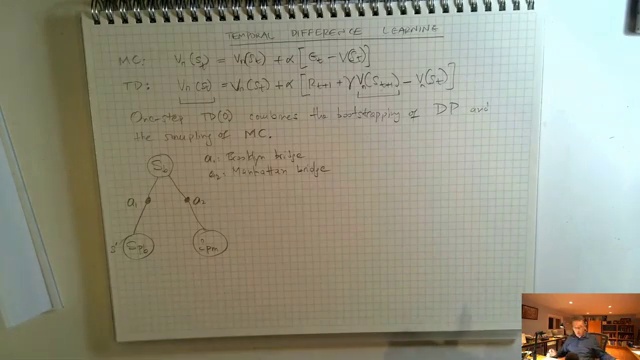 TEMPORAL DIFFERENCE LEARNING
MC: Vπ(St) = Vπ(St) + α [Gt − V(St)]
TD: Vπ(S) = Vπ(St) + α [Rt+1 + γVπ(St+1) − Vπ(St)]
One-step TD(0) combines the bootstrapping of DP and
the sampling of MC.
a1: Brooklyn bridge
a2: Manhattan bridge
a1 a2